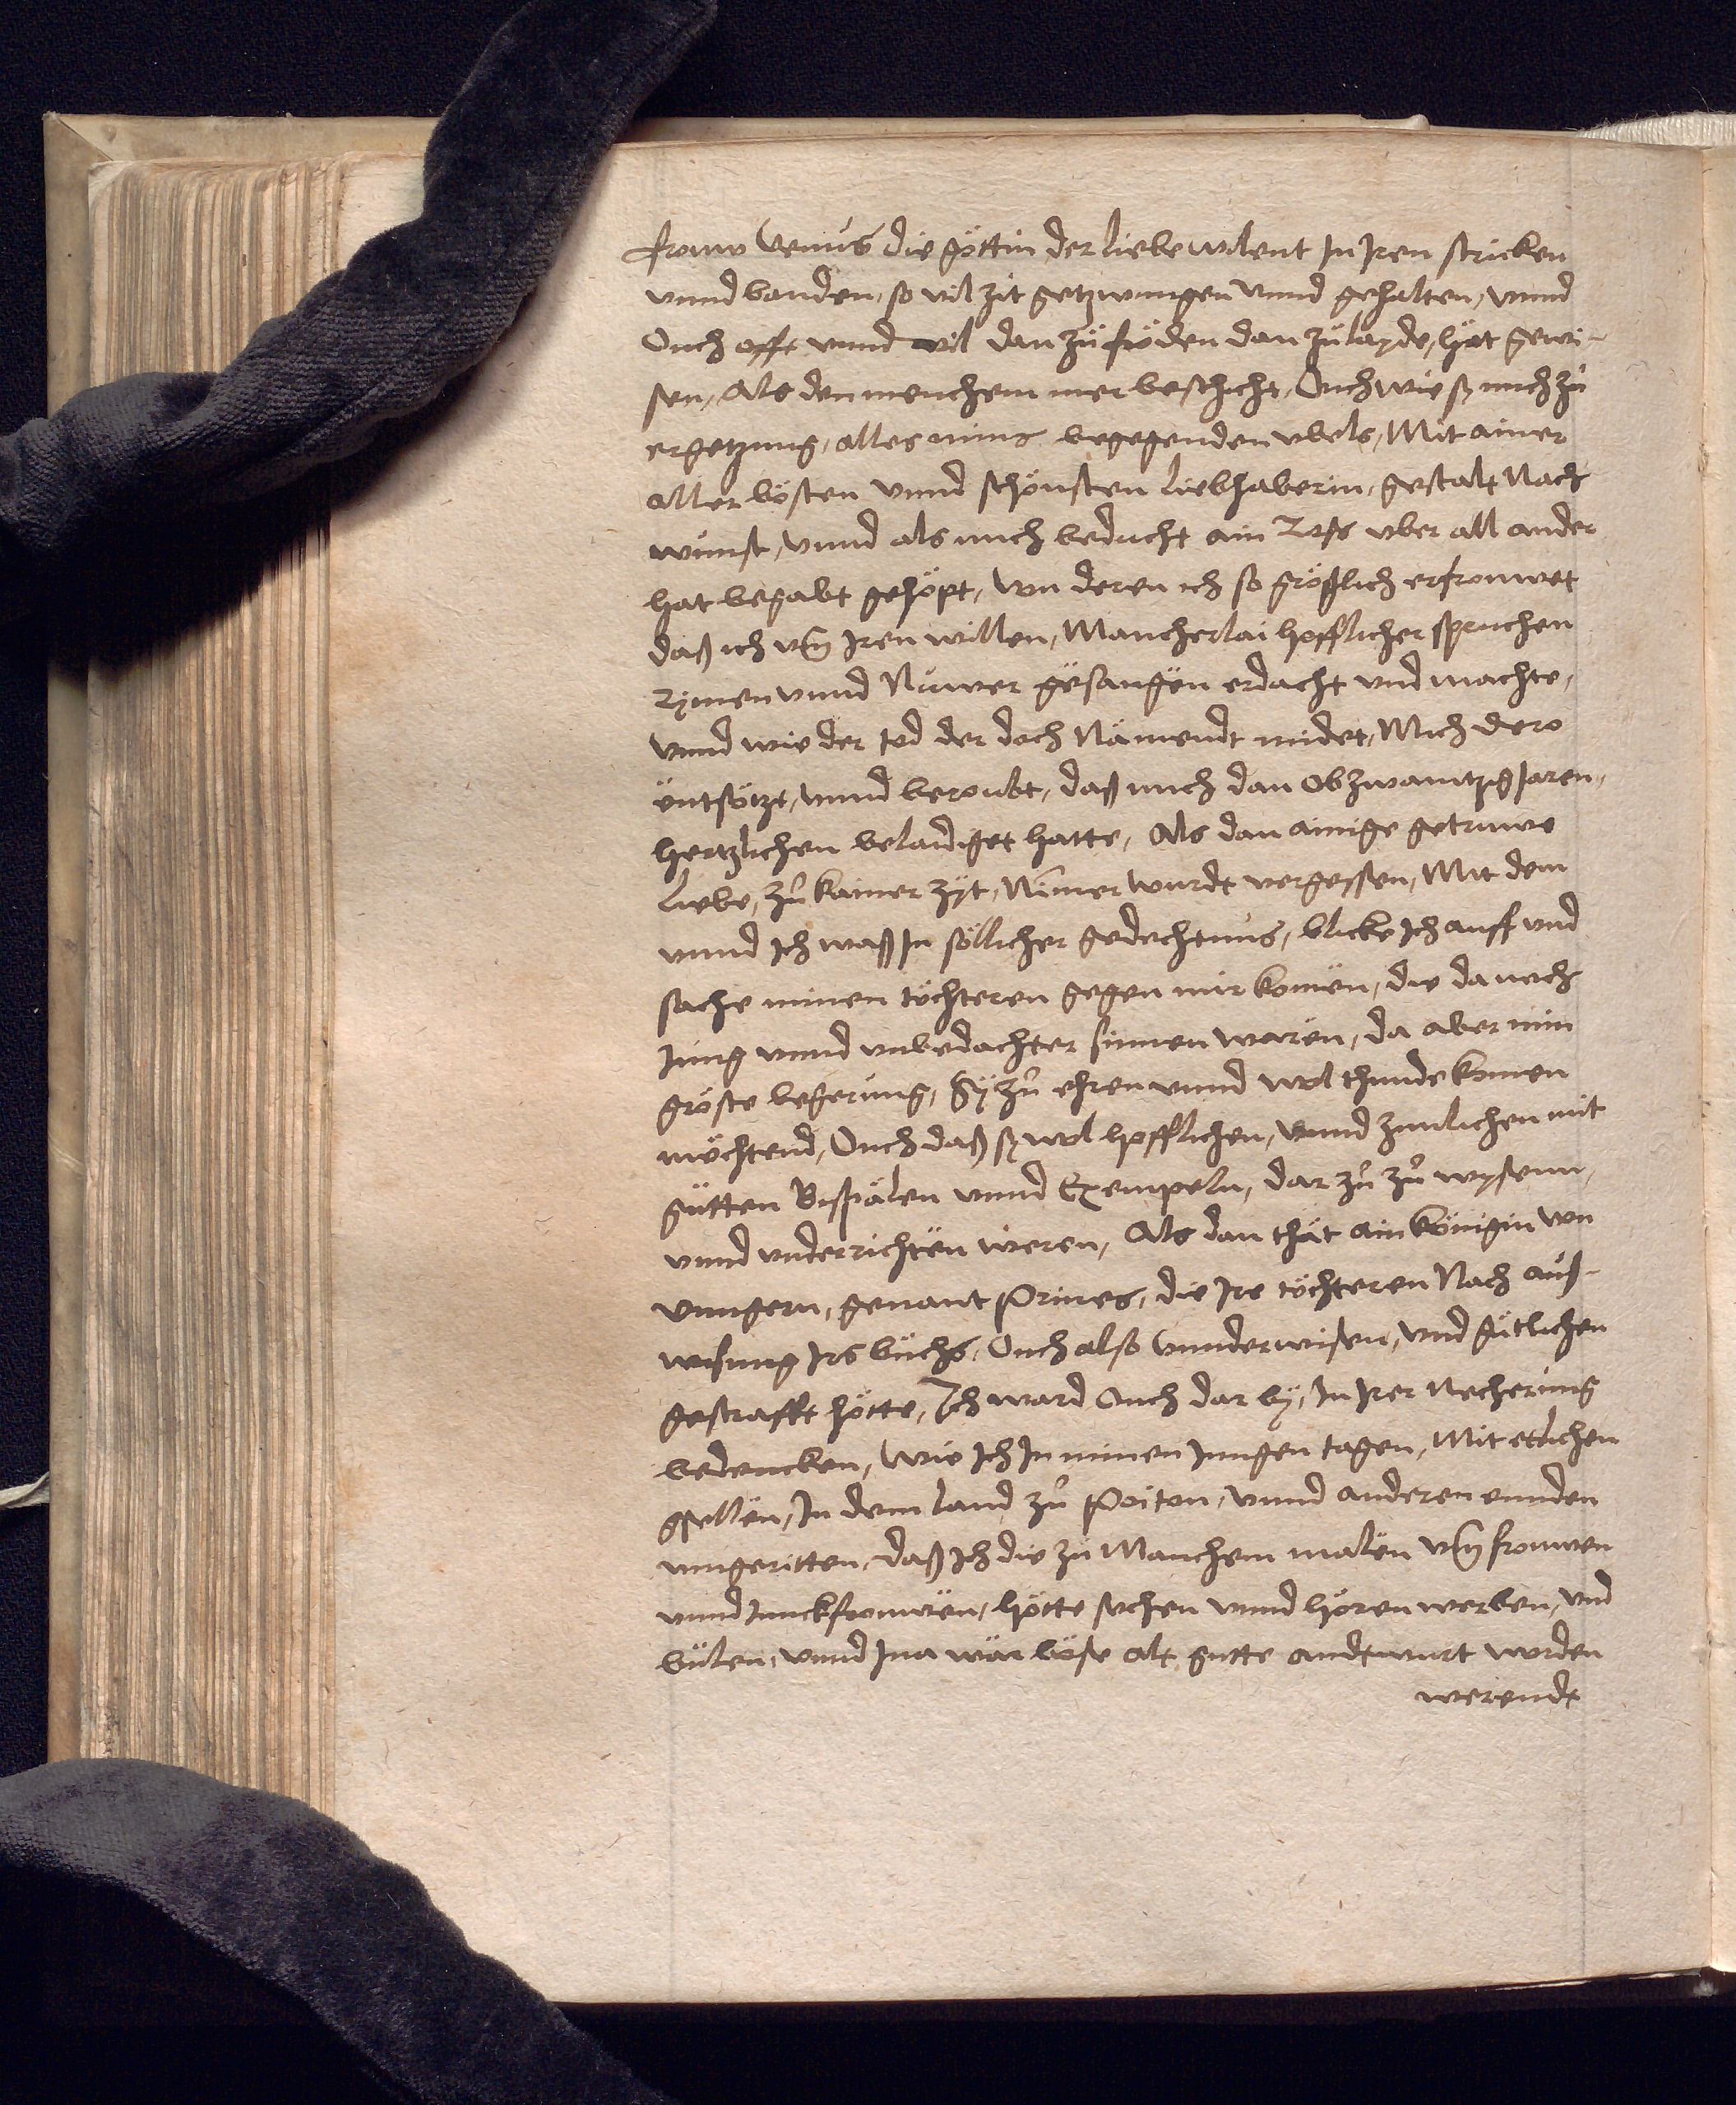 frouw Venus die göttin der liebe wilent In Iren stricken
vnnd banden, so vil zit getzwungen vnnd gehalten, vnnd
Ouch offt vnnd vil dan zů fröden dan zů layde, hät gewi-
sen, Als den menchem mer beschicht, Ouch wie sy mich zů
ergetzung, alles mins begegenden vbels, Mit ainer
aller bösten vnnd schönsten liebhaberin, gestalt Nach
wunst, vnnd als mich beducht ain Ross vber all ander
hat begabt gehöpt, von deren ich so gröslich erfrouwet
daß ich vm Iren willen, Mancherlai hofflicher spruchen
Rymen vnnd Nuwer gesangen erdacht vnd machte,
vnnd wie der tod der doch Nämendt midet, Mich dero
entsötzt, vnnd beroubt, daß mich dan ob zwamtzig Jaren,
hertzlichen belaidiget hatte, Als dan ainige getruwe
Liebe, zů kainer zyt, Nimer wurdt vergessen, Mit dem
vnnd Ich waß In söllicher gedechtnus, blickt Ich auff vnd
sache minen töchteren gegen mir komen, die da noch
Jung vnnd vnbedachter sinnen waren, da aber min
gröste begerung, Sy zů ehren vnnd wol thunde komen
möchtend, Ouch daß sy wol hofflichen, vnnd zimlichen mit
gůtten Bispälen vnnd Exempeln, dar zů zů wysenn,
vnnd vnderrichten weren, Als dan thät ain königin von
vnngern, genant Prines, die Ire töchteren Nach auß-
wisung Irs bůchs, Ouch also vnnderwisen, vnd gütlichen
gestrafft hötte, Ich ward Ouch dar by, In Irer Necherung
bedencken, Wie Ich In minen Jungen tagen, Mit etlichen
gsellen, In dem land zů Poiton, vnnd anderen ennden
umgeritten, daß Ich die zů Manchem malen vm frouwen
vnnd Junckfrouwen, hötte sechen vnnd hören werben, vnd
bůlen, vnnd Ina wär böse alt gutte andtwurt worden
werendt